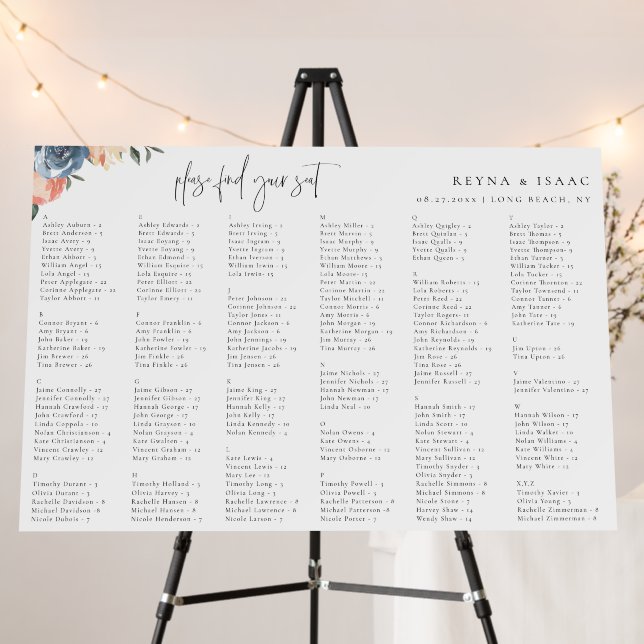 please find your seat
REYNA & ISAAC
08.27.20XX | LONG BEACH, NY
A
Ashley Auburn - 2
Brett Anderson - 5
Isaac Avery - 9
Yvette Avong - 9
Ethan Abbott - 5
William Angel - 15
Lola Angel - 15
Peter Applegate - 22
Corinne Applegate - 22
Taylor Abbott - 11
B
Connor Bryant - 6
Amy Bryant - 6
John Baker - 19
Katherine Baker - 19
Jim Brewer - 26
Tina Brewer - 26
C
Jaime Connolly - 27
Jennifer Connolly - 27
Hannah Crawford - 17
John Crawford - 17
Linda Coppola - 10
Nolan Christianson - 4
Kate Christianson - 4
Vincent Crawley - 12
Mary Crawley - 12
D
Timothy Durant - 3
Olivia Durant - 3
Rachelle Davidson - 8
Michael Davidson - 8
Nicole Dubois - 7
E
Ashley Edwards - 2
Brett Edwards - 5
Isaac Eoyang - 9
Yvette Eoyang - 9
Ethan Edmond - 5
William Esquire - 15
Lola Esquire - 15
Peter Elliott - 22
Corinne Elliott - 22
Taylor Emery - 11
F
Connor Franklin - 6
Amy Franklin - 6
John Fowler - 19
Katherine Fowler - 19
Jim Finkle - 26
Tina Finkle - 26
G
Jaime Gibson - 27
Jennifer Gibson - 27
Hannah George - 17
John George - 17
Linda Grayson - 10
Nolan Grayson - 4
Kate Gwalton - 4
Vincent Graham - 12
Mary Graham - 12
H
Timothy Holland - 3
Olivia Harvey - 3
Rachelle Hansen - 8
Michael Hansen - 8
Nicole Henderson - 7
I
Ashley Irving - 2
Brett Irving - 5
Isaac Ingram - 9
Yvette Ingram - 9
Ethan Iverson - 5
William Irwin - 15
Lola Irwin - 15
J
Peter Johnson - 22
Corinne Johnson - 22
Taylor Jones - 11
Connor Jackson - 6
Amy Jackson - 6
John Jennings - 19
Katherine Jacobs - 19
Jim Jensen - 26
Tina Jensen - 26
K
Jaime King - 27
Jennifer King - 27
Hannah Kelly - 17
John Kelly - 17
Linda Kennedy - 10
Nolan Kennedy - 4
L
Kate Lewis - 4
Vincent Lewis - 12
Mary Lee - 12
Timothy Long - 3
Olivia Long - 3
Rachelle Lawrence - 8
Michael Lawrence - 8
Nicole Larson - 7
M
Ashley Miller - 2
Brett Marvin - 5
Isaac Murphy - 9
Yvette Murphy - 9
Ethan Matthews - 5
William Moore - 15
Lola Moore - 15
Peter Martin - 22
Corinne Martin - 22
Taylor Mitchell - 11
Connor Morris - 6
Amy Morris - 6
John Morgan - 19
Katherine Morgan - 19
Jim Murray - 26
Tina Murray - 26
N
Jaime Nichols - 27
Jennifer Nichols - 27
Hannah Newman - 17
John Newman - 17
Linda Neal - 10
O
Nolan Owens - 4
Kate Owens - 4
Vincent Osborne - 12
Mary Osborne - 12
P
Timothy Powell - 3
Olivia Powell - 3
Rachelle Patterson - 8
Michael Patterson - 8
Nicole Porter - 7
Q
Ashley Quigley - 2
Brett Quinlan - 5
Isaac Qualls - 9
Yvette Qualls - 9
Ethan Queen - 5
R
William Roberts - 15
Lola Roberts - 15
Peter Reed - 22
Corinne Reed - 22
Taylor Rogers - 11
Connor Richardson - 6
Amy Richardson - 6
John Reynolds - 19
Katherine Reynolds - 19
Jim Rose - 26
Tina Rose - 26
Jaime Russell - 27
Jennifer Russell - 27
S
Hannah Smith - 17
John Smith - 17
Linda Scott - 10
Nolan Stewart - 4
Kate Stewart - 4
Vincent Sullivan - 12
Mary Sullivan - 12
Timothy Snyder - 3
Olivia Snyder - 3
Rachelle Simmons - 8
Michael Simmons - 8
Nicole Stone - 7
Harvey Shaw - 14
Wendy Shaw - 14
T
Ashley Taylor - 2
Brett Thomas - 5
Isaac Thompson - 9
Yvette Thompson - 9
Ethan Turner - 5
William Tucker - 15
Lola Tucker - 15
Corinne Thornton - 22
Taylor Townsend - 11
Connor Tanner - 6
Amy Tanner - 6
John Tate - 19
Katherine Tate - 19
U
Jim Upton - 26
Tina Upton - 26
V
Jaime Valentino - 27
Jennifer Valentino - 27
W
Hannah Wilson - 17
John Wilson - 17
Linda Walker - 10
Nolan Williams - 4
Kate Williams - 4
Vincent White - 12
Mary White - 12
X,Y,Z
Timothy Xavier - 3
Olivia Young - 3
Rachelle Zimmerman - 8
Michael Zimmerman - 8